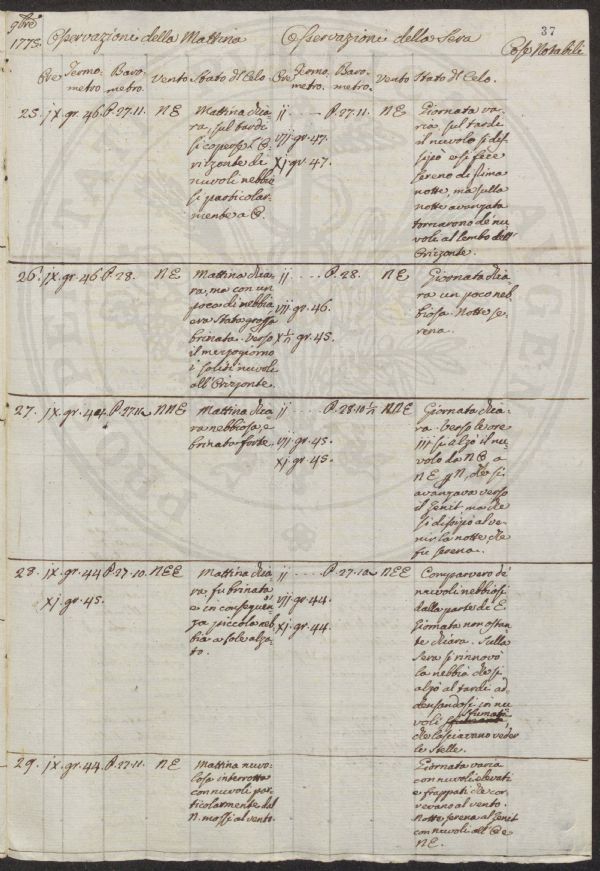 9bre
1773. Osservazioni della Mattina Osservazioni della Sera 37
Cose Notabili
Ore Termometro. Barometro. Vento Stato del Celo. Ore Termometro. Barometro. Vento Stato del Celo.
25. jx. gr. 46. P. 27. 11. NE
Mattina chia-
ra, sul tardi
si coperse l'O-
rizzonte di
nuvoli nebbio-
si particolar-
mente a O.
ij .... P. 27. 11. NE
vij gr. 47.
xj. gr. 47.
Giornata va-
ria sul tardi
il nuvolo si dis-
sipò e si fece
sereno di prima
notte, ma sulla
notte avanzata
tornarono de' nu-
voli al lembo dell'
Orizonte.
26. jx. gr. 46. P. 28. NE
Mattina chia-
ra, ma con un
poca di nebbia
era stata grossa
brinata. Verso
il mezzogiorno
i soliti nuvoli
all'Orizonte.
ij .... P. 28. NE
vij gr. 46.
x ½ gr. 45.
Giornata chia-
ra un poco neb-
biosa. Notte se-
rena.
27. jx. gr. 44. P. 27. 11. NNE
Mattina chia-
ra nebbiosa, e
brinata forte.
ij .... P. 28. 10 ½ NNE
vij gr. 45.
xj gr. 45.
Giornata chia-
ra. Verso le ore
iij si alzò il nu-
volo da NO a
NE N, che si
avanzava verso
il Zenit ma che
si dissipò al ve-
nir la notte che
fu serena.
28. jx. gr. 44 P. 27. 10. NEE
xj. gr. 45.
Mattina chia-
ra fu brinata
e in conseguen-
za piccola neb-
bia a sole alza-
to.
ij .... P. 27. 10. NEE
vij gr. 44.
xj gr. 44.
Comparvero de'
nuvoli nebbiosi
dalla parte di E
Giornata non ostan-
te chiara. Sulla
sera si rinnovò
la nebbia che si
alzò al tardi ad-
densandosi in nu-
voli sfumati,
che lasciavano veder
le stelle.
29. jx. gr. 44. P. 27. 11. NE
Mattina nuvo-
losa interrotta
con nuvoli par-
ticolarmente dal
N. mossi al vento.
Giornata varia
con nuvoli elevati
e frappati che cor-
revano al vento.
Notte serena al Zenit
con nuvoli all' O e
NE.